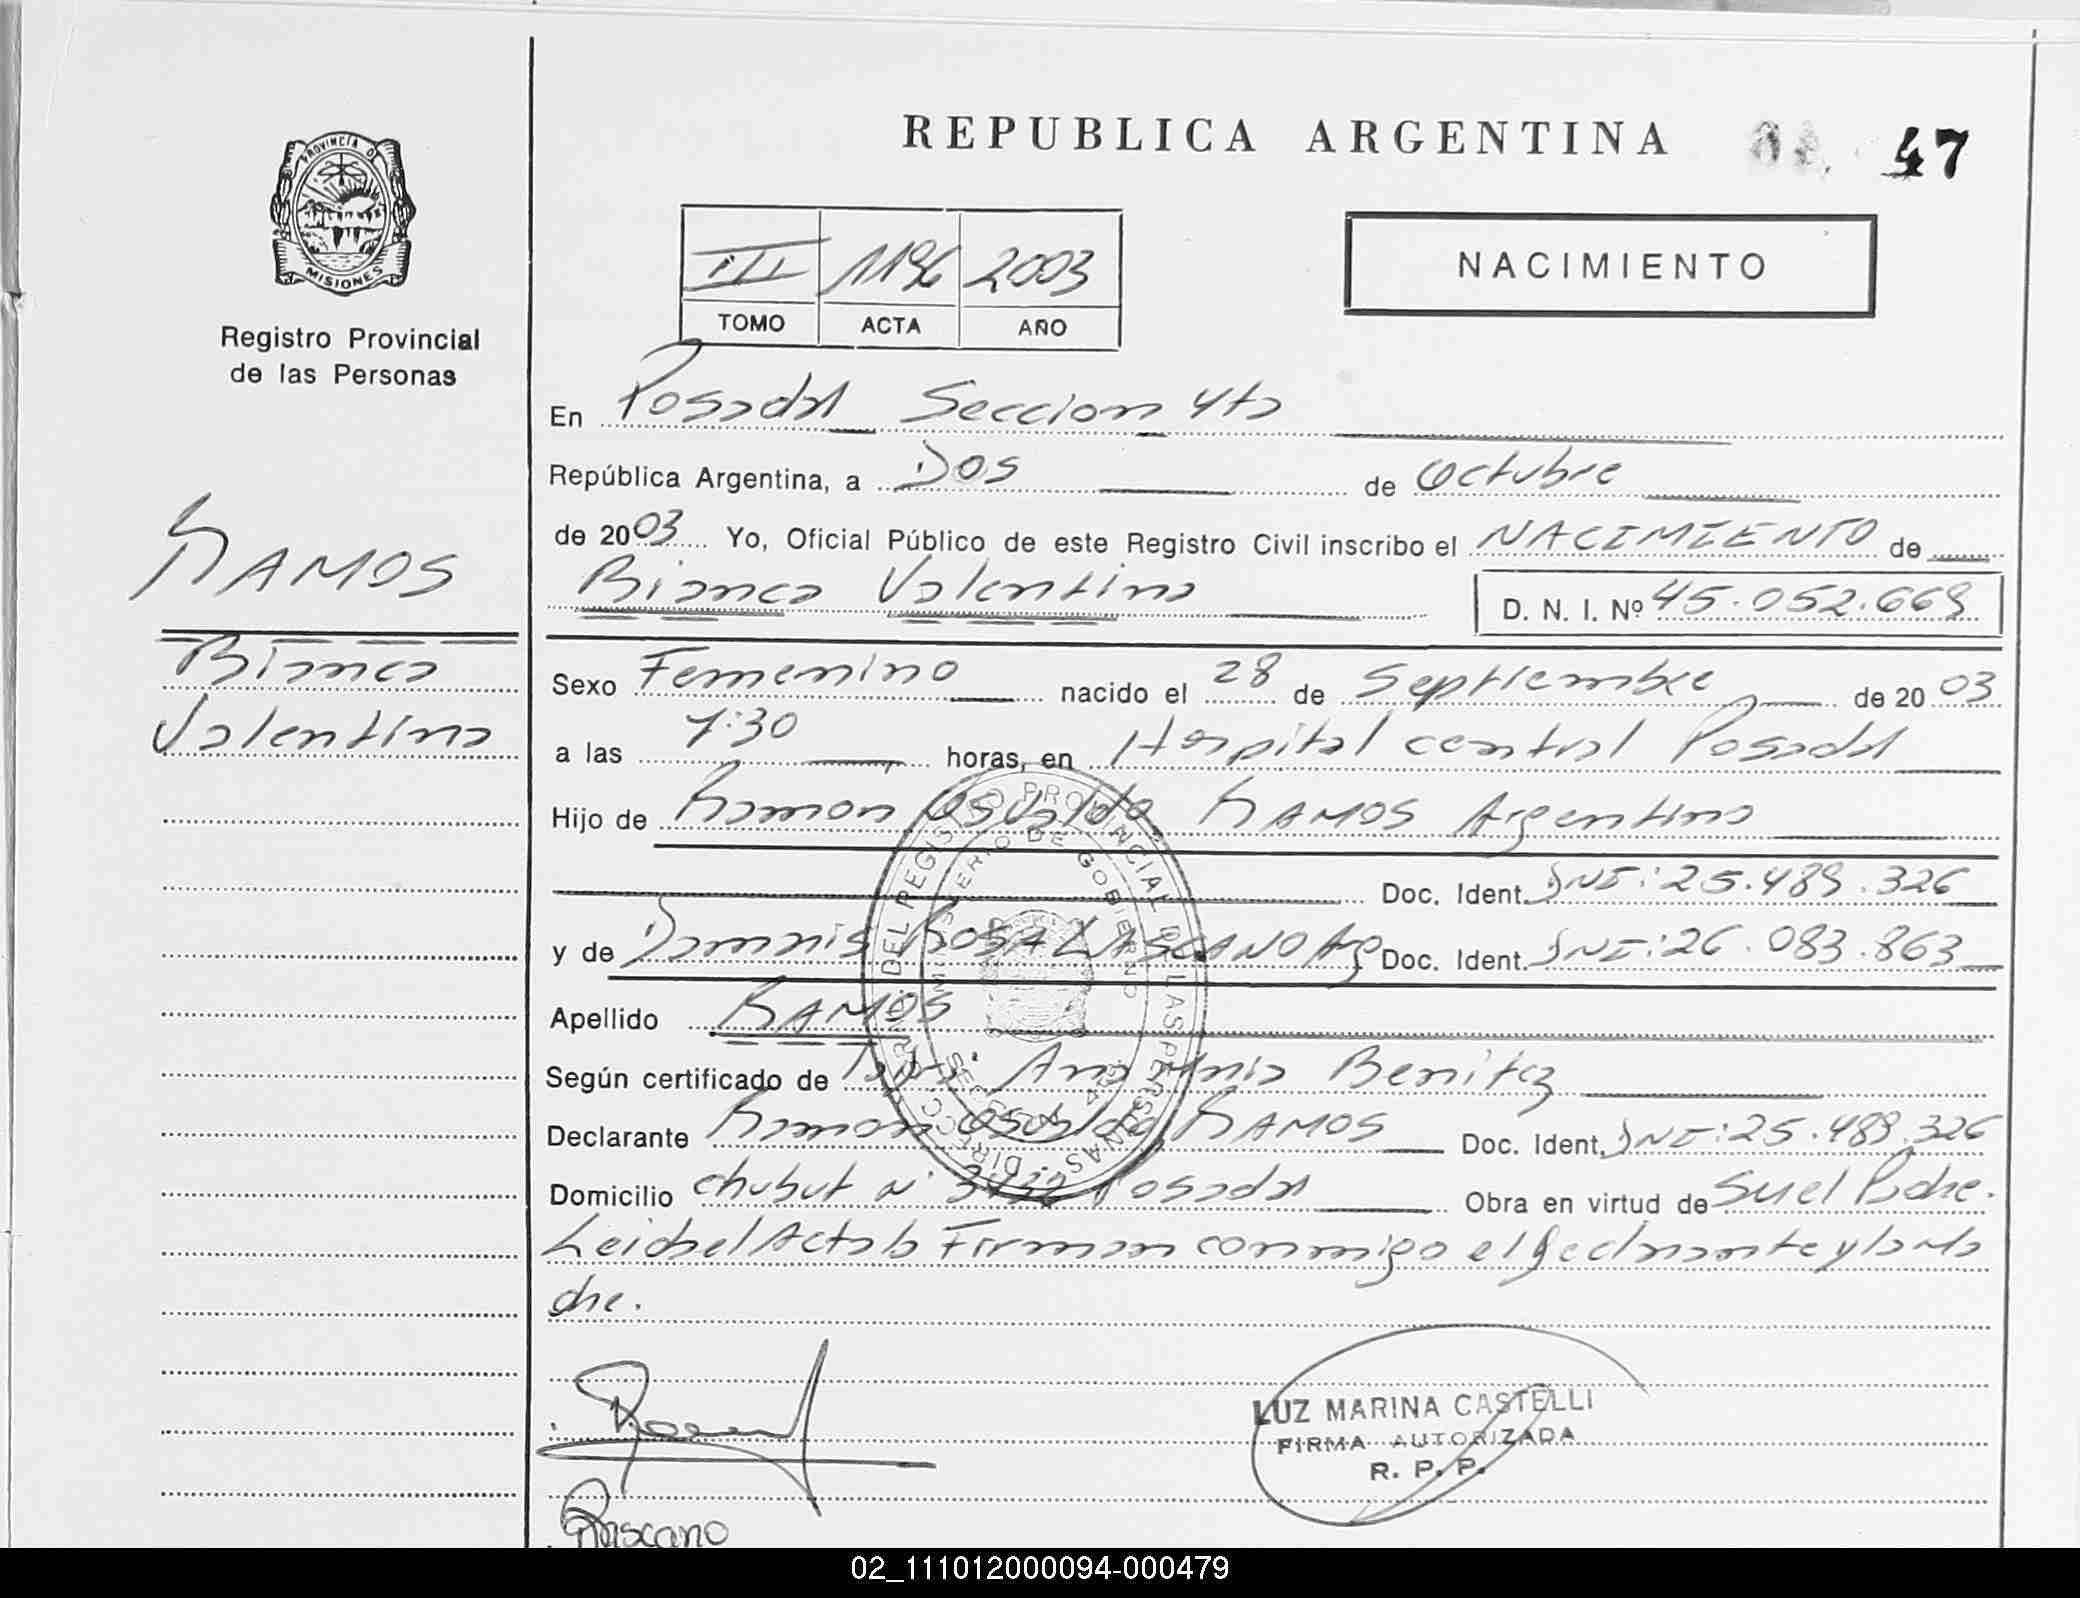 REPUBLICA ARGENTINA 47
PROVINCIA D
MISIONES
Registro Provincial
de las Personas
III 1196 2003
TOMO ACTA AÑO
NACIMIENTO
En Posadas Seccion 4ta
República Argentina, a Dos de Octubre
de 2003 Yo, Oficial Público de este Registro Civil inscribo el NACIMIENTO de
Bianca Valentina D. N. I. Nº 45.052.669
RAMOS
Bianca
Valentina
Sexo Femenino nacido el 28 de Septiembre de 2003
a las 7:30 horas, en Hospital central Posadas
Hijo de Ramon Osvaldo RAMOS Argentino
Doc. Ident. DNI: 25.489.326
y de Rosa LASCANO Arg Doc. Ident. DNI: 26.083.863
Apellido RAMOS
Según certificado de Benitez
Declarante Ramon Osvaldo RAMOS Doc. Ident. DNI: 25.489.326
Domicilio chubut Nº Posadas Obra en virtud de Su el Padre.
Leida el Acta la Firman conmigo el declarante y la Ma
dre.
LUZ MARINA CASTELLI
FIRMA AUTORIZADA
R. P. P.
Lascano
DIRECC. DEL REGISTRO PROVINCIAL DE LAS PERSONAS
MINISTERIO DE GOBIERNO
02_111012000094-000479